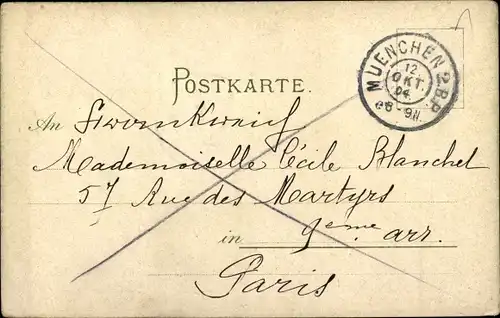 MUENCHEN 2 B.P.
12
OKT.
04.
POSTKARTE.
An
Mademoiselle Cécile Blanchet
57 Rue des Martyrs
in 9eme arr.
Paris